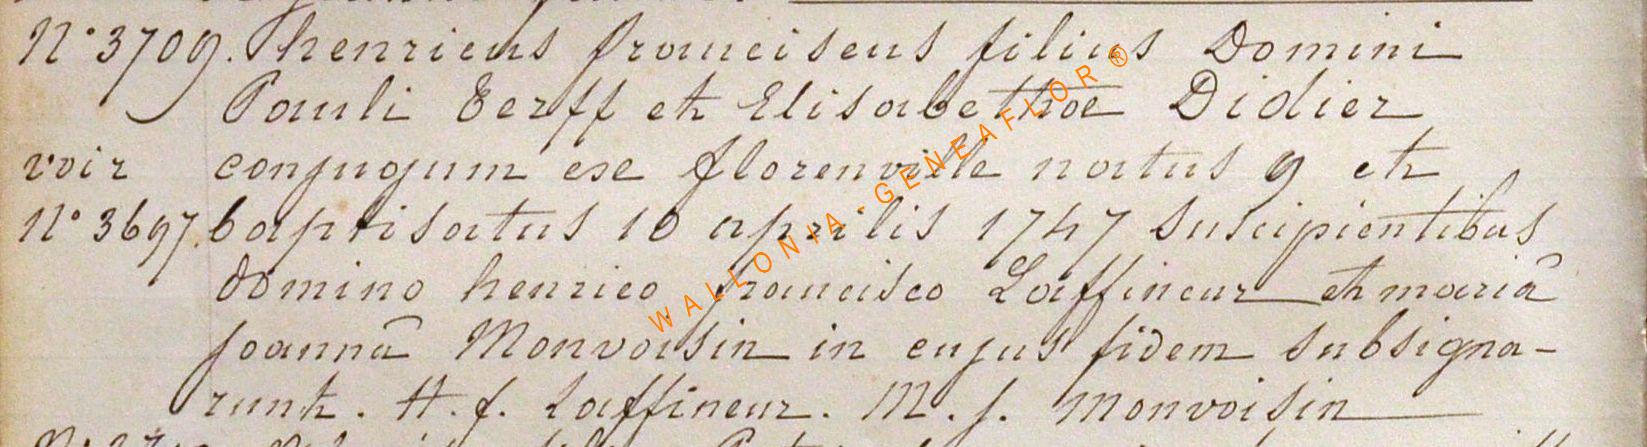 N° 3709. henricus franciscus filius Domini
Pauli Eerff et Elisabethæ Didier
voir conjugum ex florenville natus 9 et
N° 3697. baptisatus 10 aprilis 1747 suscipientibus
domino henrico francisco Laffineur et mariâ
joannâ Monvoisin in cujus fidem subsigna-
runt. H. f. Laffineur. M. j. Monvoisin
WALLONIA-GENEAFLOR®